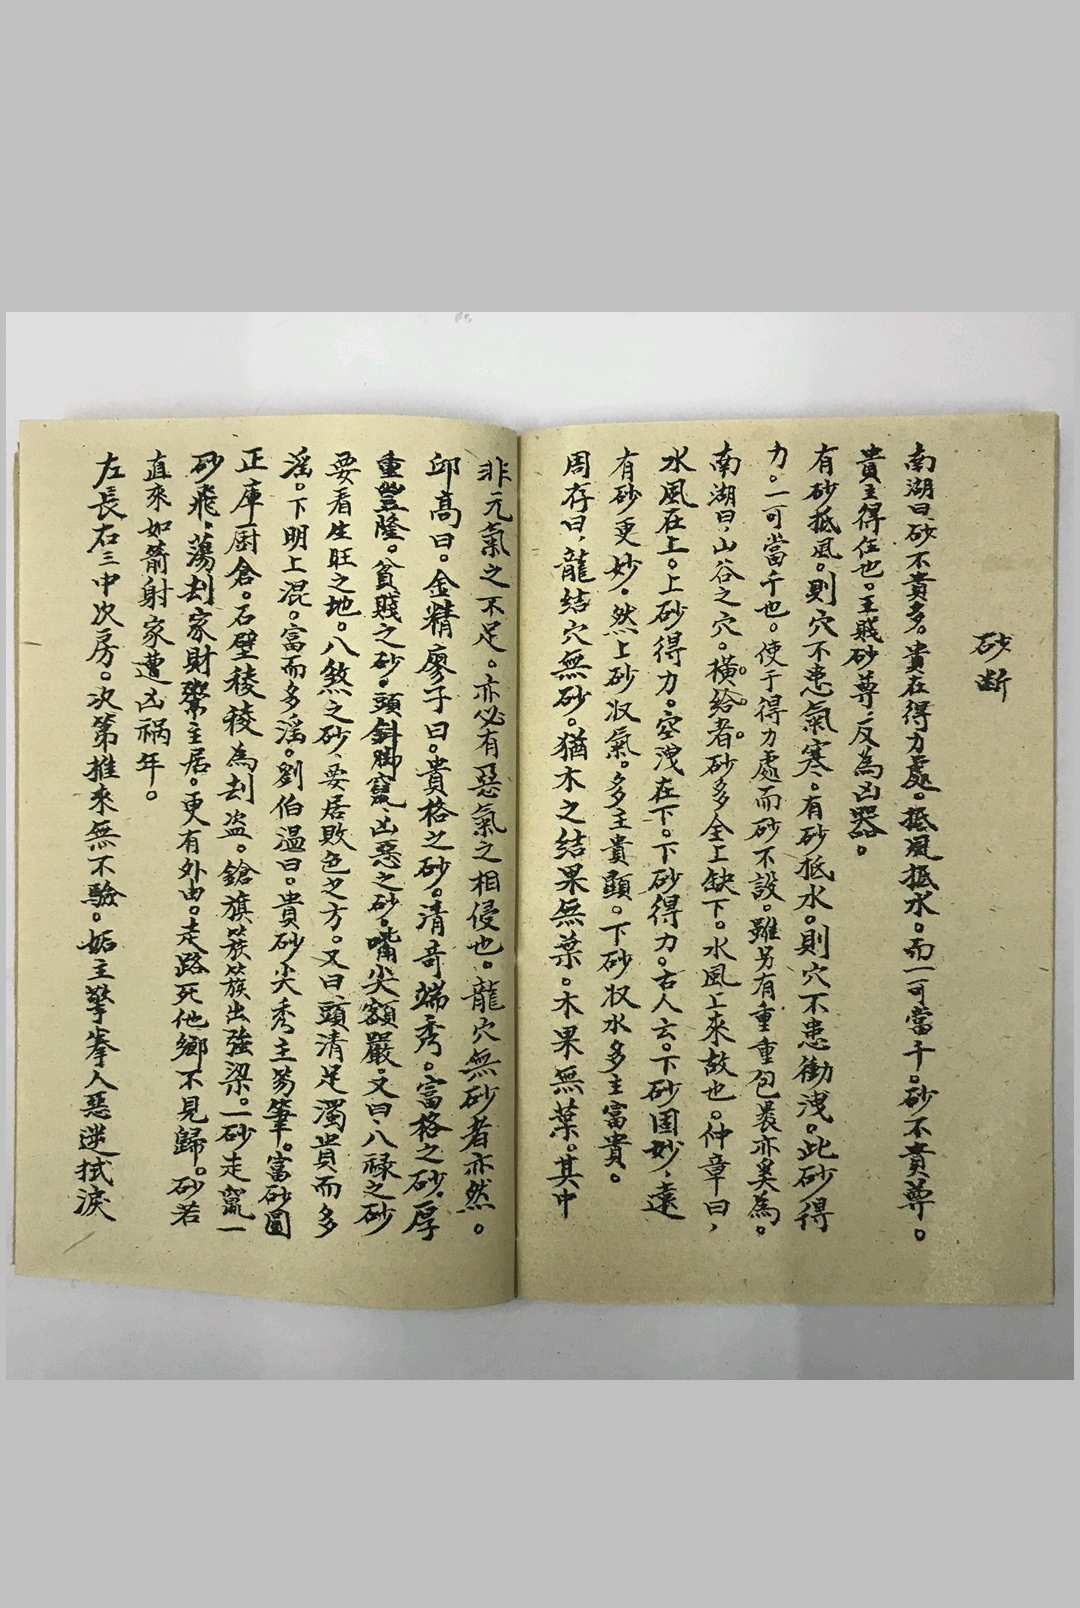 砂断
南湖曰砂不貴多。貴在得力處。抵風抵水。而一可當千。砂不貴尊。
貴主得任也。主賤砂尊。反為凶器。
有砂抵風。則穴不患氣寒。有砂抵水。則穴不患衝洩。此砂得
力。一可當千也。使于得力處而砂不設。雖另有重重包裹亦奚為。
南湖曰，山谷之穴。橫給者。砂多全上缺下。水風上來故也。仲章曰，
水風在上。上砂得力。空洩在下。下砂得力。古人云。下砂固妙，遠
有砂更妙。然上砂収氣。多主貴顕。下砂収水多主富貴。
周存曰，龍結穴無砂。猶木之结果無葉。木果無葉。其中
非元氣之不足。亦必有惡氣之相侵也。龍穴無砂者亦然。
邱高曰。金精廖子曰。貴格之砂。清奇端秀。富格之砂，厚
重豐隆。貧賤之砂。頭斜脚竄、凶惡之砂，嘴尖額巖。又曰、八禄之砂
要看生旺之地。八煞之砂、要居敗色之方。又曰、頭清足濁貴而多
滛。下明上混。富而多滛。劉伯温曰。貴砂尖秀主笏筆。富砂圓
正庫厨倉。石壁稜稜為刦盗。鎗旗簇簇出強梁。一砂走竄一
砂飛，蕩刦家財禦主居。更有外由。走路死他鄉不見歸。砂若
直來如箭射家遭凶禍年。
左長右三中次房。次第推來無不驗。妬主擎拳人惡逆拭淚